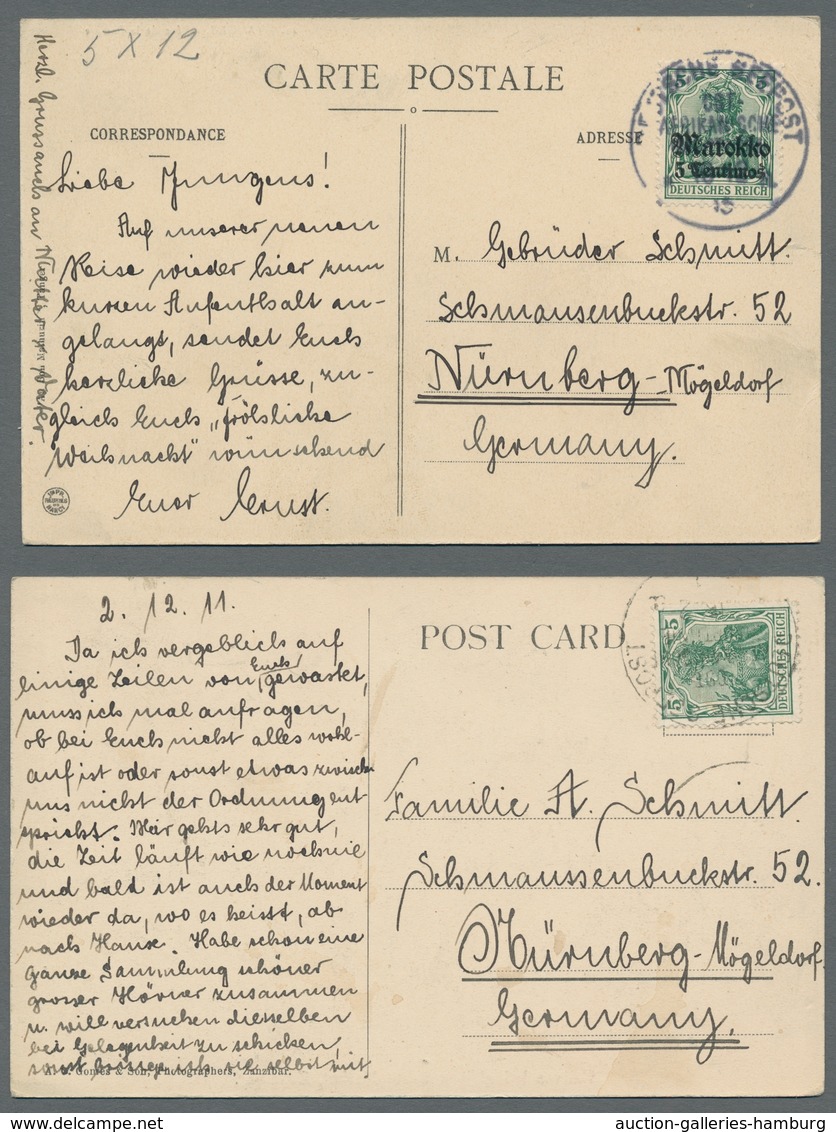 5 X 12
CARTE POSTALE
CORRESPONDANCE
ADRESSE
Liebe Jungens!
Auf unserer neuen
Reise wieder hier zum
kurzen Aufenthalt an-
gelangt, sendet Euch
herzliche Grüsse, zu-
gleich Euch „fröhliche
Weihnacht" wünschend
Euer Ernst.
Herzl. Gruss auch an Mutter Vater.
5 5
Marokko
5 Centimos
DEUTSCHES REICH
M. Gebrüder Schmitt.
Schmausenbuckstr. 52
Nürnberg-Mögeldorf
Germany.
2. 12. 11.
POST CARD
Da ich vergeblich auf
einige Zeilen von Euch gewartet,
muss ich mal anfragen,
ob bei Euch nicht alles wohl-
auf ist oder sonst etwas zwischen
uns nicht der Ordnung ent
spricht. Mir gehts sehr gut,
die Zeit läuft wie noch nie
und bald ist auch der Moment
wieder da, wo es heisst, ab
nach Hause. Habe schon eine
ganze Sammlung schöner
grosser Hörner zusammen
u. will versuchen dieselben
bei Gelegenheit zu schicken,
sonst bringe ich sie selbst mit
Gomes & Son, Photographers, Zanzibar.
5 5
DEUTSCHES REICH
Familie A. Schmitt.
Schmaussenbuckstr. 52.
Nürnberg-Mögeldorf.
Germany.
auction-galleries-hamburg